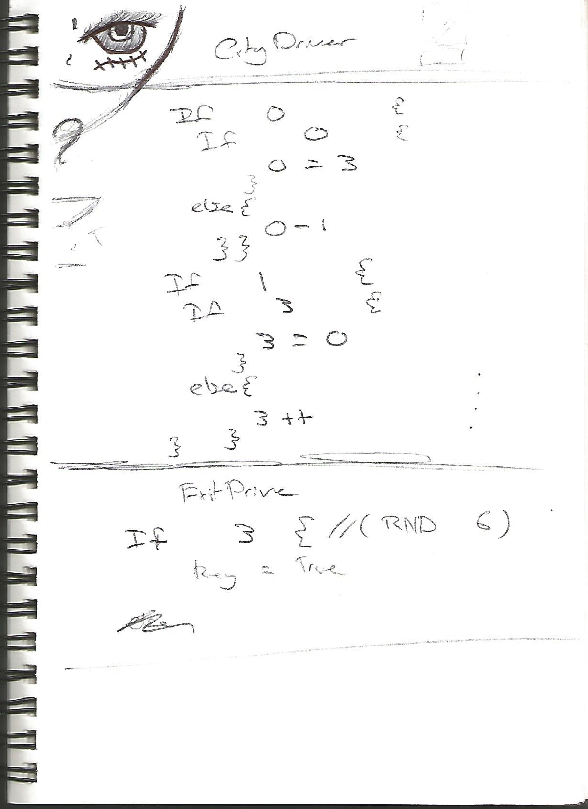 City Driver
1
2
?
If 0 {
If 0 {
0 = 3
}
else{
0 - 1
}}
If 1 {
If 3 {
3 = 0
}
else{
3 ++
} }
Exit Drive
If 3 { //( RND 6)
Key = True